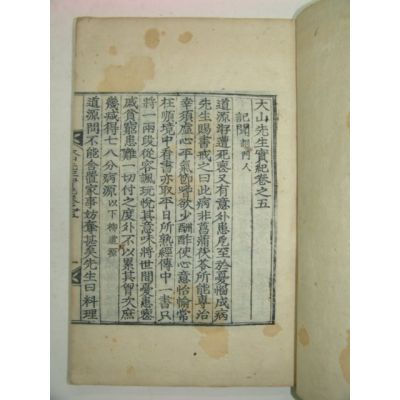 大山先生實紀卷之五
記聞 門人
道源洊遭死喪又有意外患厄至於憂惱成病
先生賜書戒之曰此病非菖蒲茯苓所能專治
幸須虛心平氣節嗜欲少酬酢使心意怡愉常
在順境中看書亦取平日所熟經傳中一書只
將一兩段從容諷玩悅其意味將世間憂患
戚貧窮患難一切付之度外不以累其胷次庶
幾減得七八分病源 以下柳道源
道源問不能舍置家事妨奪甚矣先生曰料理